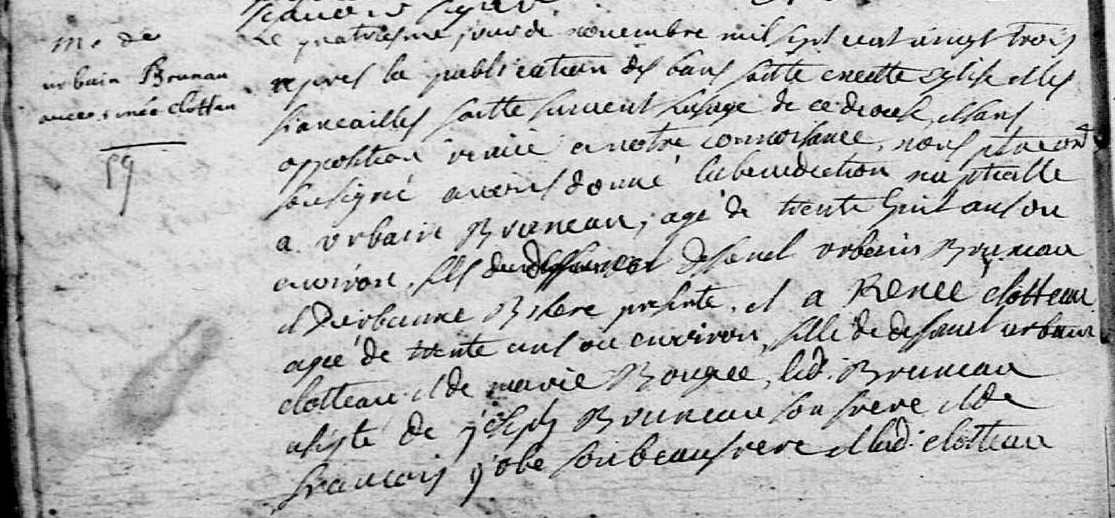 me de
urbain Brunau
avec renée clottau
59
Le quatriesme jour de novembre mil sept cent vingt trois
apres la publication des bans faitte en cette eglise et les
fiancailles faitte suivent l'usage de ce diocese et sans
opposition venüe a notre connoisance, nous
sousigné avons donné la benediction nuptialle
a urbain Bruneau, agé de trente huit ans ou
environ, fils de deffunct urbain Bruneau
et d'urbanne presente, et a Renee clotteau
agée de trente ans ou environ, fille de defunct urbain
clotteau et de marie Bougee, led. Bruneau
asisté de joseph Bruneau son frere et de
francois jobe son beaufrere et lad. clotteau